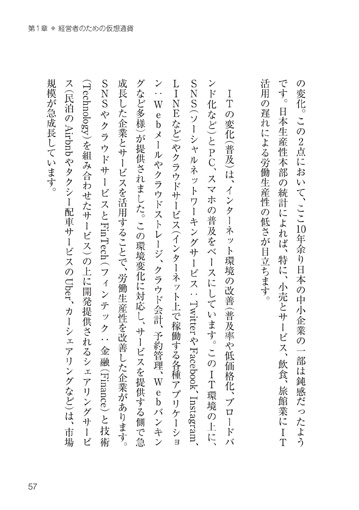 第1章 ◆ 経営者のための仮想通貨
の変化。この2点において、ここ10年余り日本の中小企業の一部は鈍感だったよう
です。日本生産性本部の統計によれば、特に、小売とサービス、飲食、旅館業にIT
活用の遅れによる労働生産性の低さが目立ちます。
ITの変化(普及)は、インターネット環境の改善(普及率や低価格化、ブロードバ
ンド化など)とPC、スマホの普及をベースにしています。このIT環境の上に、
SNS(ソーシャルネットワーキングサービス:TwitterやFacebook、Instagram、
LINEなど)やクラウドサービス(インターネット上で稼働する各種アプリケーショ
ン:Webメールやクラウドストレージ、クラウド会計、予約管理、Webバンキン
グなど多様)が提供されました。この環境変化に対応し、サービスを提供する側で急
成長した企業とサービスを活用することで、労働生産性を改善した企業があります。
SNSやクラウドサービスとFinTech(フィンテック:金融(Finance)と技術
(Technology)を組み合わせたサービス)の上に開発提供されるシェアリングサービ
ス(民泊のAirbnbやタクシー配車サービスのUber、カーシェアリングなど)は、市場
規模が急成長しています。
57